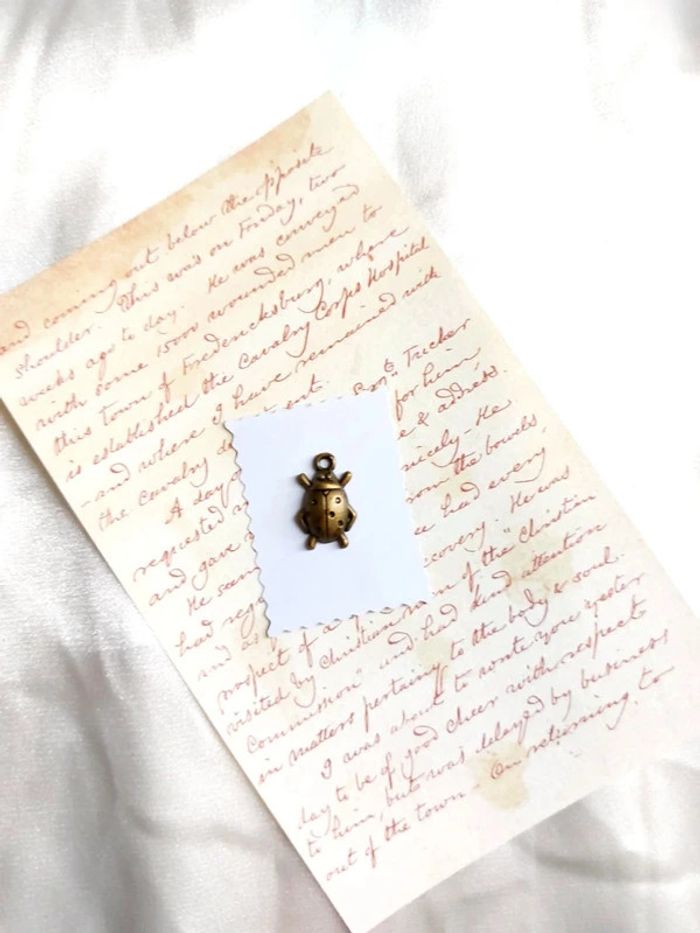 and coming out below the opposite
shoulder. This was on Friday, two
weeks ago to day. He was conveyed
with some 1500 wounded men to
this town of Fredericksburg, where
is established the Cavalry Corps Hospital
- and where I have remained with
the Cavalry
A day Tucker
requested for him
and gave & address.
He seem nicely - He
had rom the bowels,
and as had every
prospect of a recovery. He was
visited by Christian of the Christian
Commission" and had kind attention
in matters pertaining to the body & soul.
I was about to write you yester
day to be of good cheer with respect
to him, but was delayed by business
out of the town - On returning, to